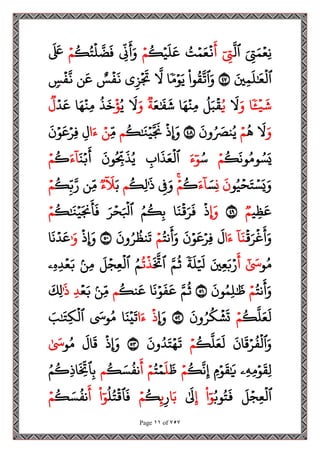 نِعْمَتِىَ ٱلَّتِىٓ أَنْعَمْتُ عَلَيْكُمْ وَأَنِّى فَضَّلْتُكُمْ عَلَى
ٱلْعَٰلَمِينَ ٤٧ وَٱتَّقُوا۟ يَوْمًا لَّا تَجْزِى نَفْسٌ عَن نَّفْسٍ
شَيْـًٔا وَلَا يُقْبَلُ مِنْهَا شَفَٰعَةٌ وَلَا يُؤْخَذُ مِنْهَا عَدْلٌ
وَلَا هُمْ يُنصَرُونَ ٤٨ وَإِذْ نَجَّيْنَٰكُم مِّنْ ءَالِ فِرْعَوْنَ
يَسُومُونَكُمْ سُوٓءَ ٱلْعَذَابِ يُذَبِّحُونَ أَبْنَآءَكُمْ
وَيَسْتَحْيُونَ نِسَآءَكُمْ ۚ وَفِى ذَٰلِكُم بَلَآءٌ مِّن رَّبِّكُمْ
عَظِيمٌ ٤٩ وَإِذْ فَرَقْنَا بِكُمُ ٱلْبَحْرَ فَأَنجَيْنَٰكُمْ
وَأَغْرَقْنَآ ءَالَ فِرْعَوْنَ وَأَنتُمْ تَنظُرُونَ ٥٠ وَإِذْ وَٰعَدْنَا
مُوسَىٰٓ أَرْبَعِينَ لَيْلَةً ثُمَّ ٱتَّخَذْتُمُ ٱلْعِجْلَ مِنۢ بَعْدِهِۦ
وَأَنتُمْ ظَٰلِمُونَ ٥١ ثُمَّ عَفَوْنَا عَنكُم مِّنۢ بَعْدِ ذَٰلِكَ
لَعَلَّكُمْ تَشْكُرُونَ ٥٢ وَإِذْ ءَاتَيْنَا مُوسَى ٱلْكِتَٰبَ
وَٱلْفُرْقَانَ لَعَلَّكُمْ تَهْتَدُونَ ٥٣ وَإِذْ قَالَ مُوسَىٰ
لِقَوْمِهِۦ يَٰقَوْمِ إِنَّكُمْ ظَلَمْتُمْ أَنفُسَكُم بِٱتِّخَاذِكُمُ
ٱلْعِجْلَ فَتُوبُوٓا۟ إِلَىٰ بَارِئِكُمْ فَٱقْتُلُوٓا۟ أَنفُسَكُمْ
Page ١١ of ٧٥٧